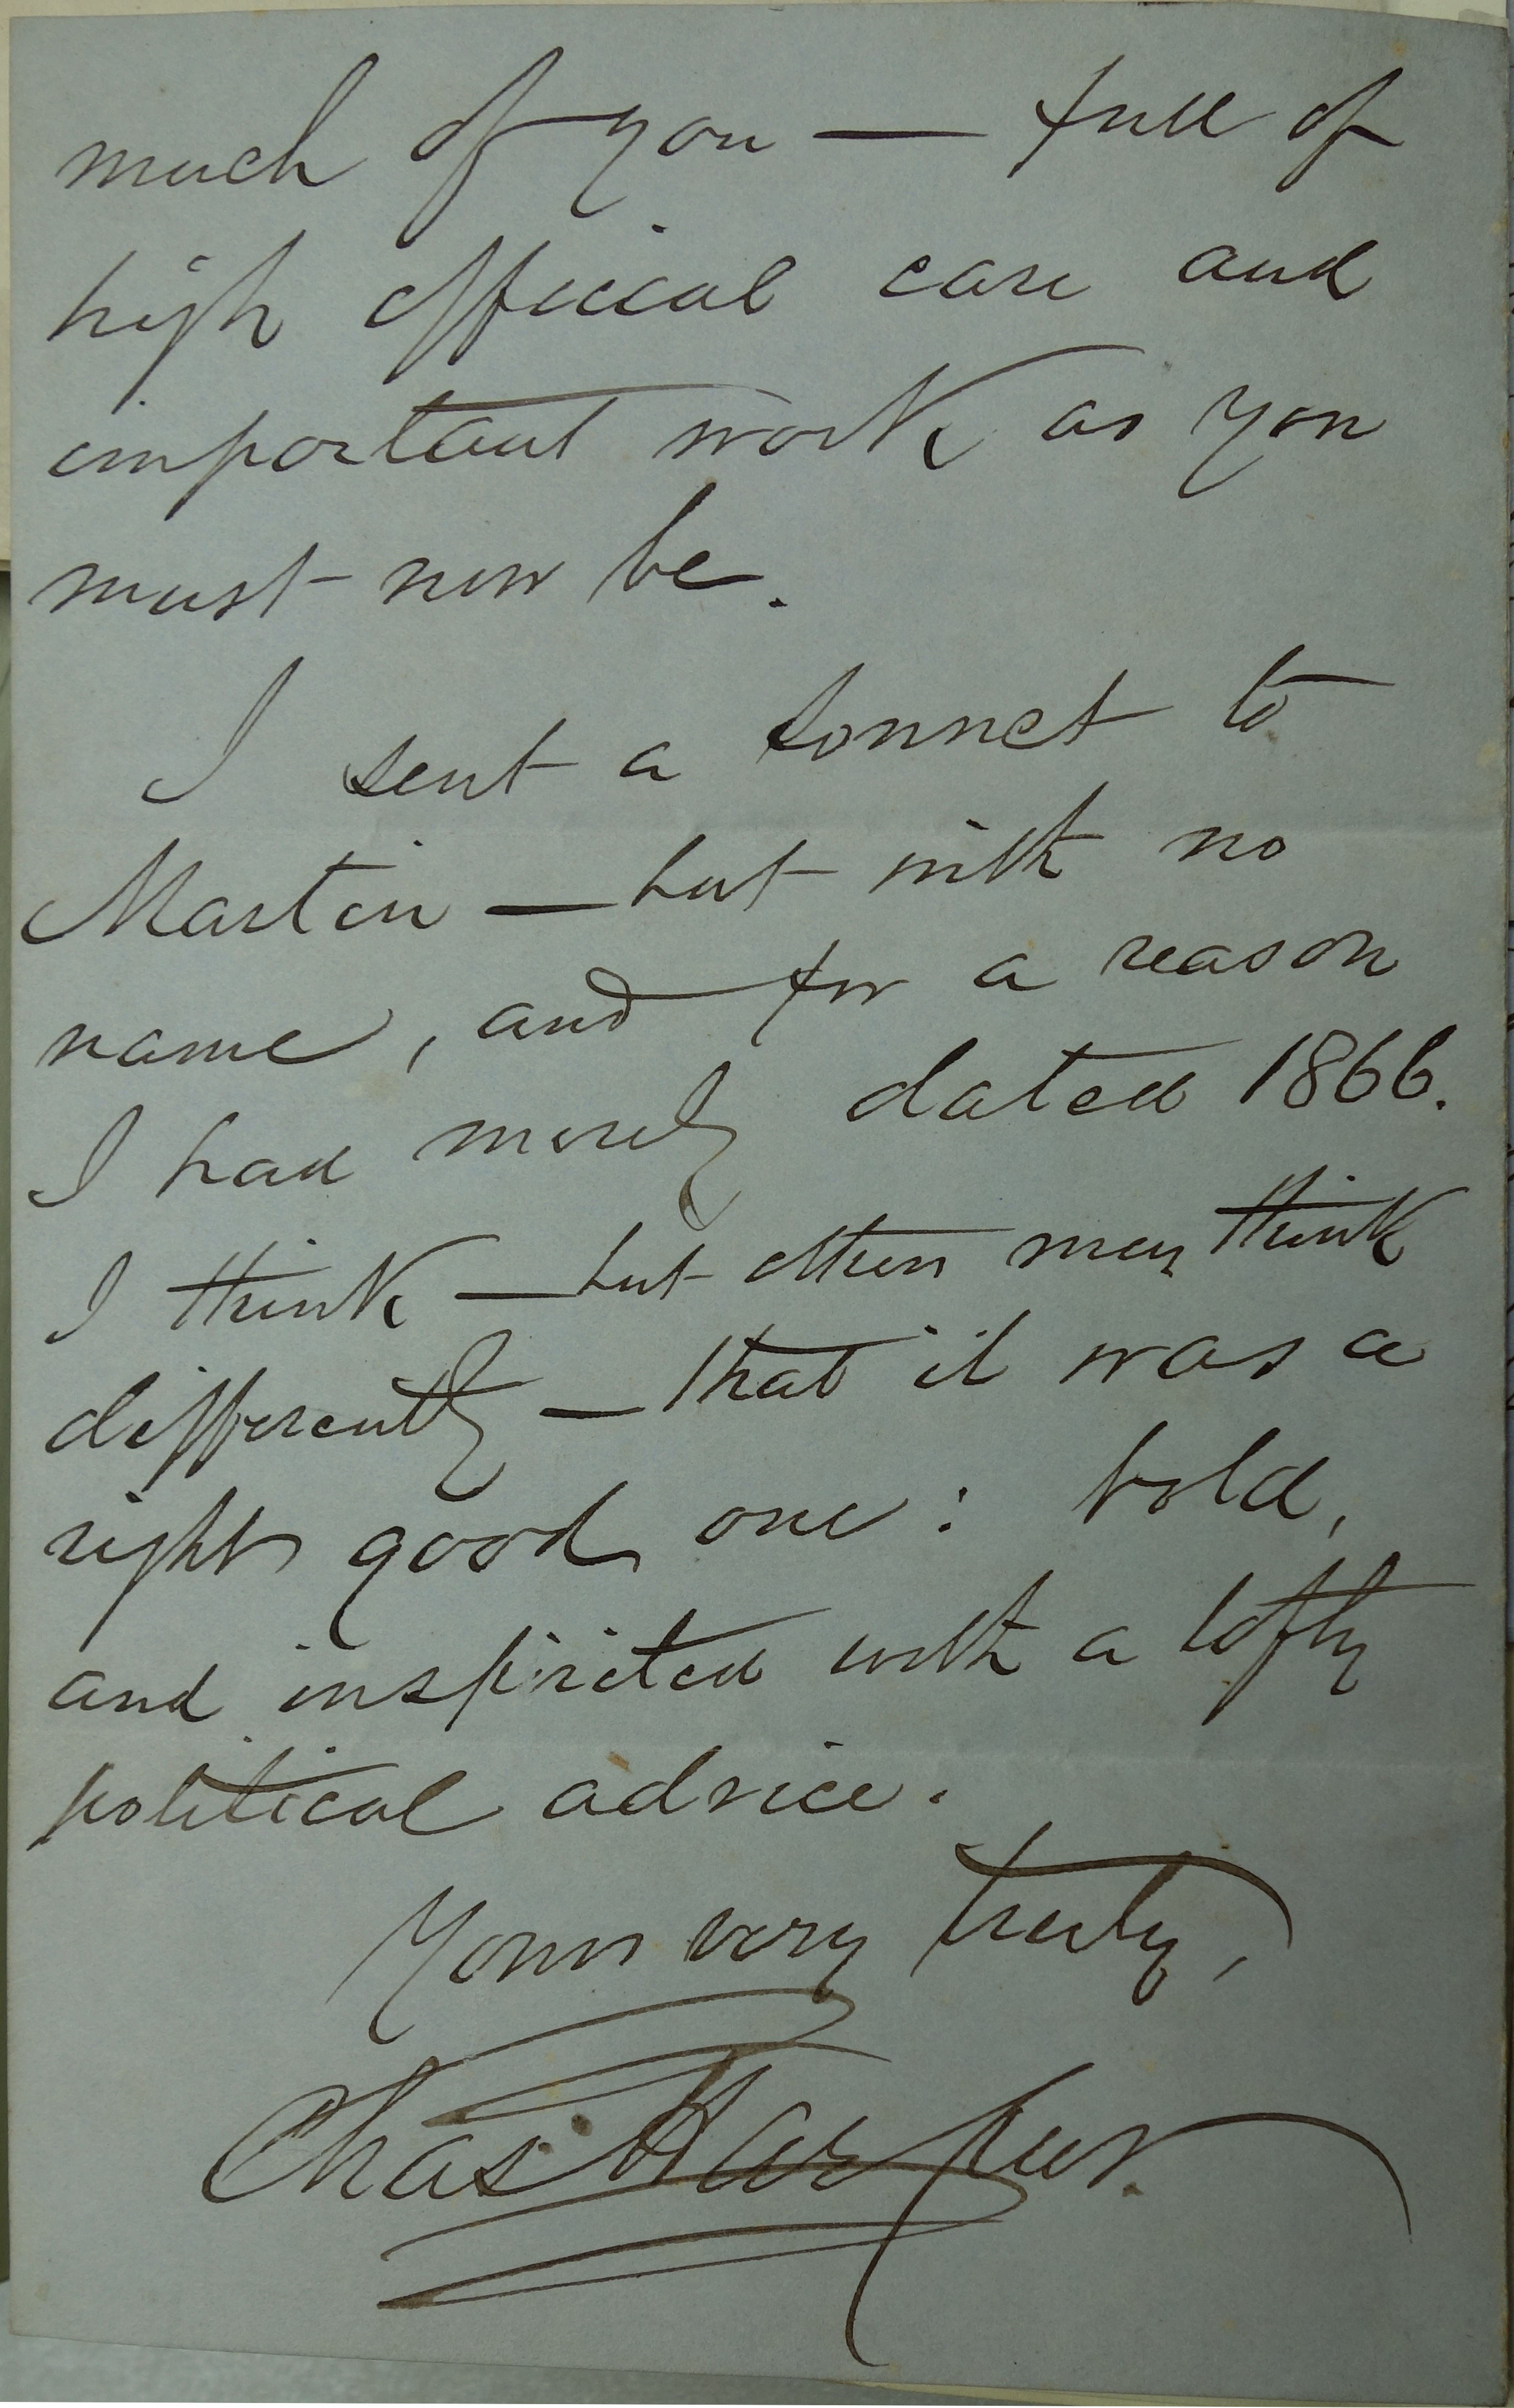 much of you — full of
high official care and
important work as you
must now be.
I sent a sonnet to
Martin — but with no
name, and for a reason
I had merely dated 1866.
I think — but others may think
differently — that it was a
right good one: bold,
and inspirited with a lofty
political advice.
Yours very truly,
Chas. Harpur.